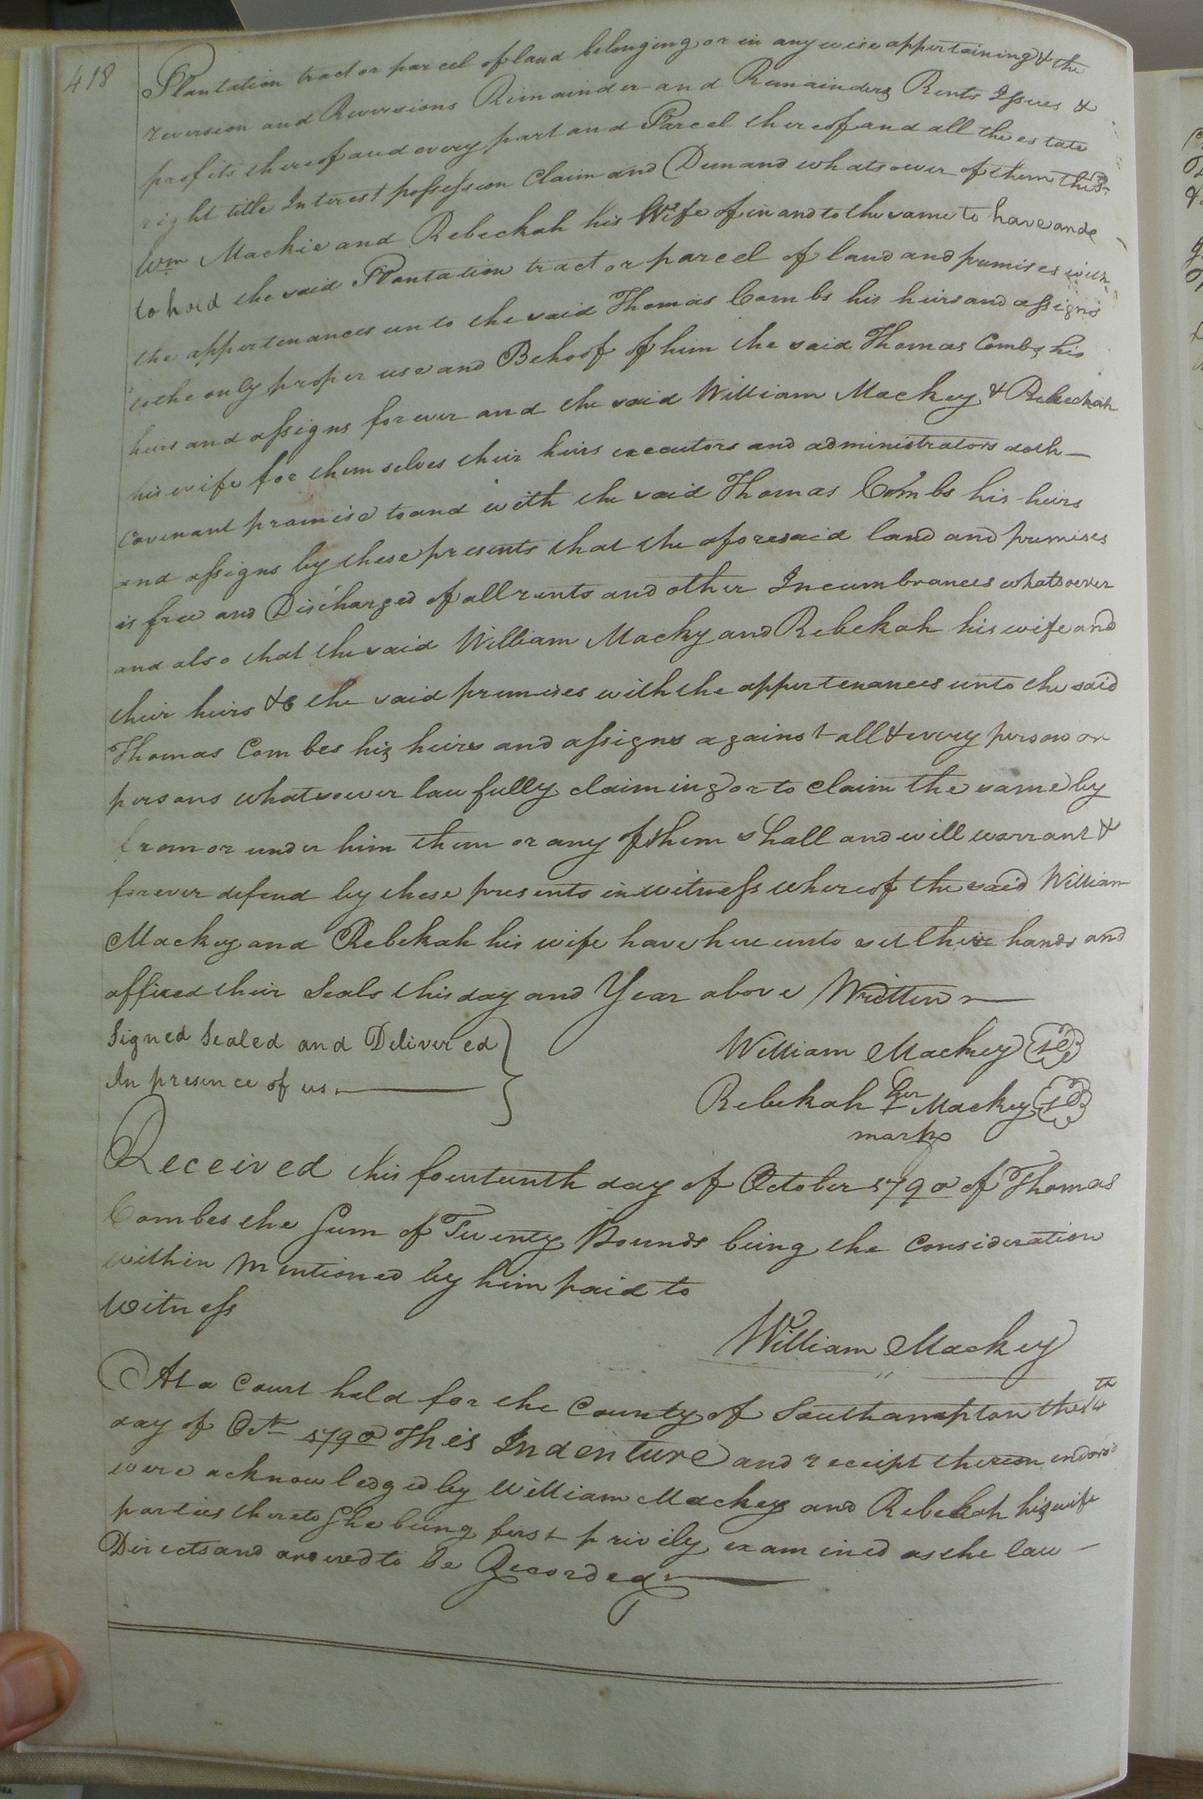 418
Plantation tract or parcel of land belonging or in any wise appertaining & the
reversion and Reversions Remainder and Remainders Rents Issues &
profits thereof and every part and Parcel thereof and all the estate
right title Interest possession Claim and Demand whatsoever of them the sd
Wm Mackie and Rebeckah his Wife of in and to the same to have and
to hold the said Plantation tract or parcel of land and premises with
the appertenances unto the said Thomas Combs his heirs and assigns
to the only proper use and Behoof of him the said Thomas Combs his
heirs and assigns forever and the said William Mackey & Rebeckah
his wife for them selves their heirs executors and administrators doth
Covenant promise to and with the said Thomas Combs his heirs
and assigns by these presents that the aforesaid land and premises
is free and Discharged of all rents and other Incumbrances whatsoever
and also that the said William Macky and Rebekah his wife and
their heirs &c the said premises with the appertenances unto the said
Thomas Combes his heirs and assigns against all & every person or
persons whatsoever lawfully claiming or to claim the same by
from or under him them or any of them shall and will warrant &
forever defend by these presents in witness whereof the said William
Mackey and Rebekah his wife have here unto set their hands and
affixed their Seals this day and Year above Written
Signed Sealed and Delivered
In presence of us
William Mackey
Rebekah her Mackey
mark
Received this fourteenth day of October 1790 of Thomas
Combes the Sum of Twenty Pounds being the Consideration
within Mentioned by him paid to
Witness
William Mackey
At a Court held for the County of Southampton the 14th
day of Octr 1790 This Indenture and receipt thereon endorsd
were acknowledged by William Mackey and Rebekah his wife
parties thereto She being first privily examined as the law
Directs and ordered to be Recorded